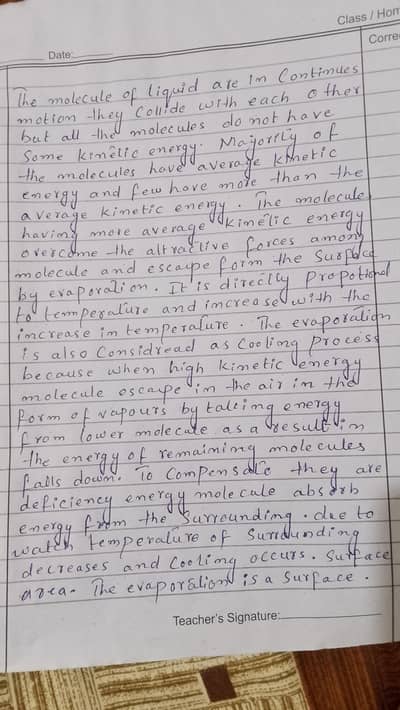 Class / Hom
Date:
Corre
The molecule of liquid are in Continues
motion they Collide with each other
but all the molecules do not have
Some kinetic energy. Majority of
the molecules have average kinetic
energy and few have more than the
average kinetic energy. The molecule
having more average kinetic energy
overcome the altractive forces among
molecule and escaupe form the Susface
by evaporation. It is directly propotional
to temperature and increased with the
increase in temperature. The evaporation
is also Considread as Cooling process
because when high kinetic energy
molecule escaupe in the air in the
form of vapours by talcing energy
from lower molecule as a result in
the energy of remaining molecules
falls down. To Compensate they are
deficiency energy molecule absorb
energy from the Surrounding. due to
watch temperature of Surrounding
decreases and Cooling occurs. Surface
area. The evaporation is a Surface.
Teacher's Signature: